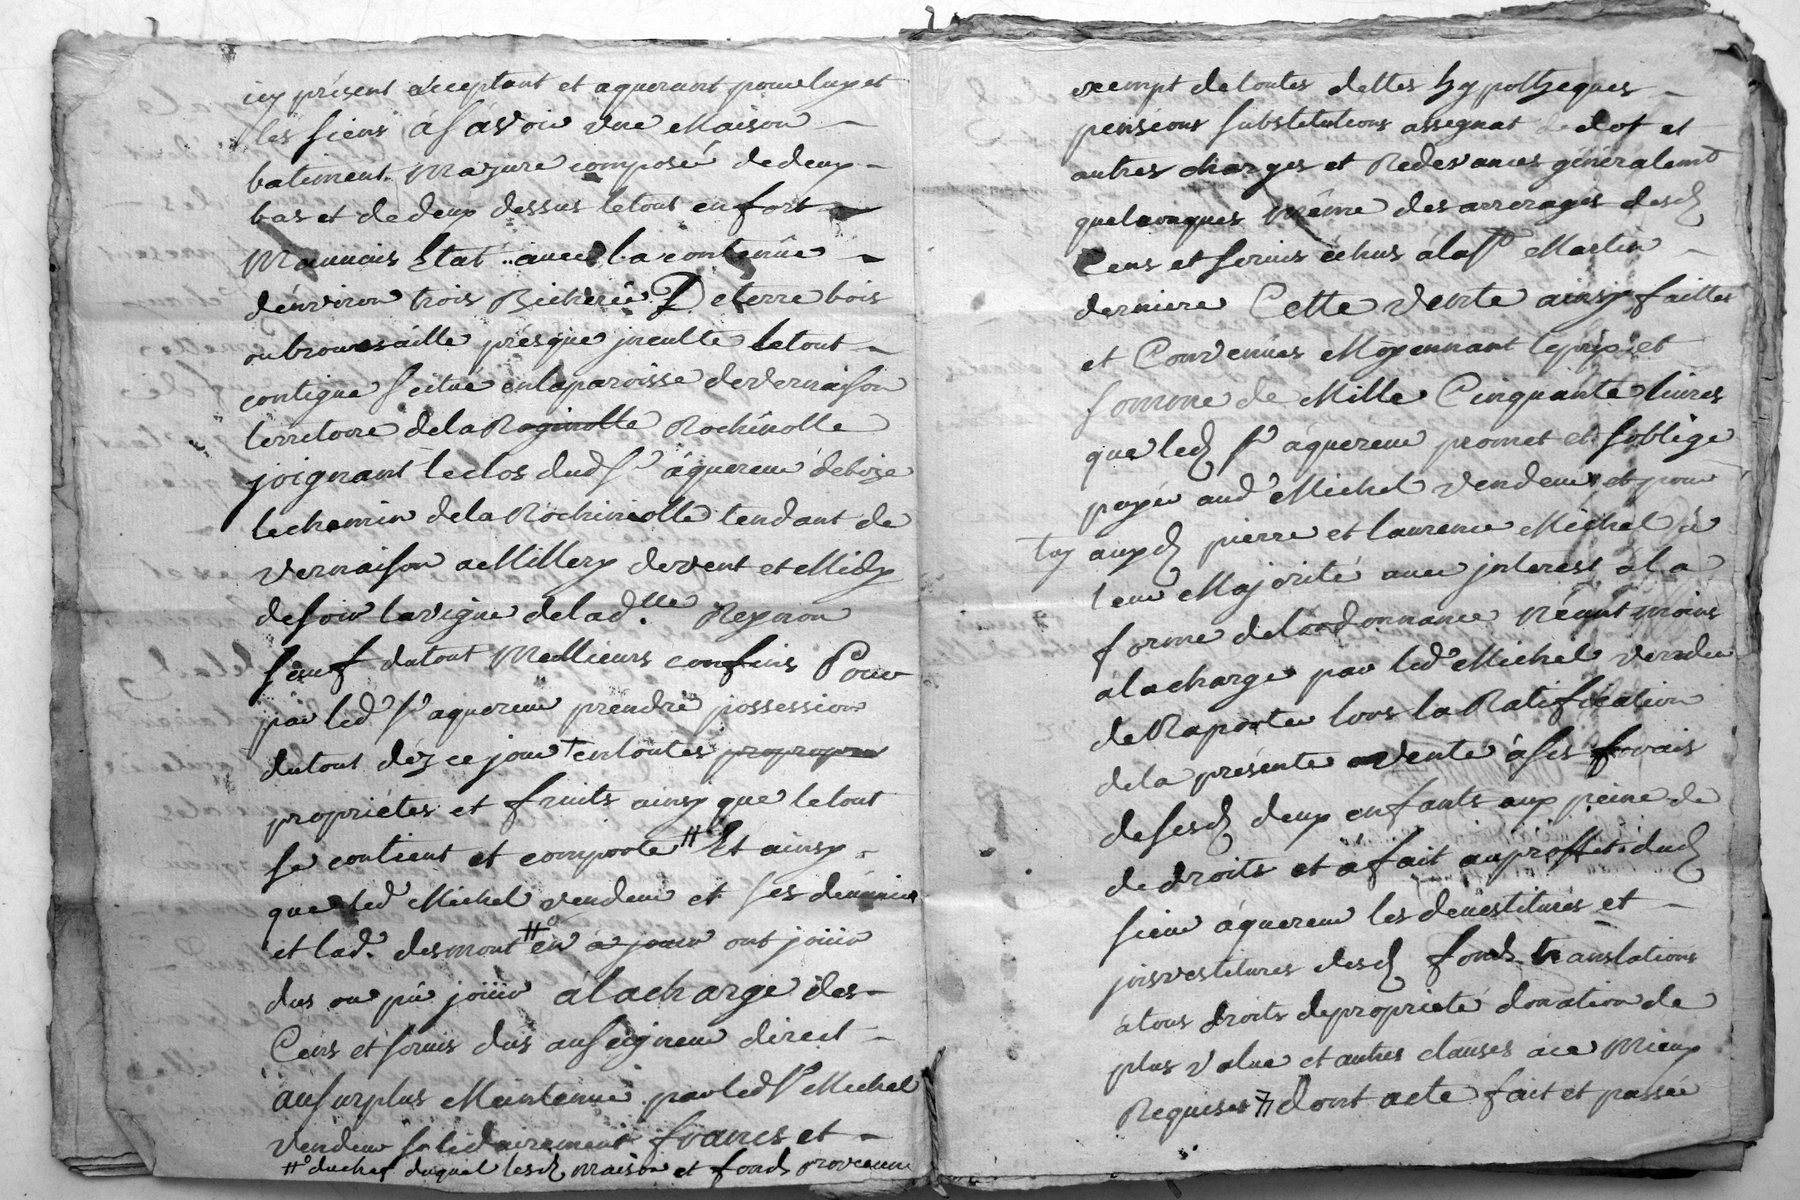 icy présent acceptant et aquerant pour luy et
les siens a sávoir une Maison
batiment Mazure composé de deux
bas et de deux dessus le tout en fort
Mauvais Etat avec la contenüe
d'environ trois Bicherée De terre bois
ou brouessaille présque inculte le tout
contigue scitué en la paroisse de vernaison
territoire de la Roginolle Rochinolle
joignant le clos dud Sr áquereur de bize
le chemin de la Rochinolle tendant de
vernaison a Millery de vent et Midy
de soir la vigne de lad.lle Reynon
Sauf du tout Meilleurs confins Pour
par led Sr aquereur prendre possession
du tout déz ce jour + en toutes propropre
propriétés et fruits ainsy que le tout
se contient et comporte # Et ainsy
que led Michel vendeur et ses
et lad. desmont # en a jouir ont joüir
dus ou pû joüir á la charge des
Cens et servis dûs au seigneur direct
au surplus Maintenue par led Sr Michel
Vendeur solidairement francs et
# du chef duquel lesd maison et fonds
exempt de toutes dettes hypotheques
pensions substitutions assegnat de dot et
autres charges et Redevances généralemt
quelconques Même des arrerages desd
Cens et servis échus á la St Martin
derniere Cette vente ainsy faittes
et Convenues Moyennant le prix et
somme de Mille Cinquante livres
que led Sr áquereur promet et s'oblige
payer aud Michel Vendeur et pour
luy auxd pierre et laurence Michel á
leur Majorité avec interest á la
forme de l'ordonnance Néantmoins
a la charge par led Michel vendeur
de Raporter lors la Ratification
de la présente vente á ses frais
de sesd deux enfants aux peine de
de droits et á fait au proffit dud
sieur áquereur les devestitures et
investitures desd fonds translations
á tous droits de propriété donation de
plus value et autres clauses á ce Mieux
Requises # dont acte fait et passée